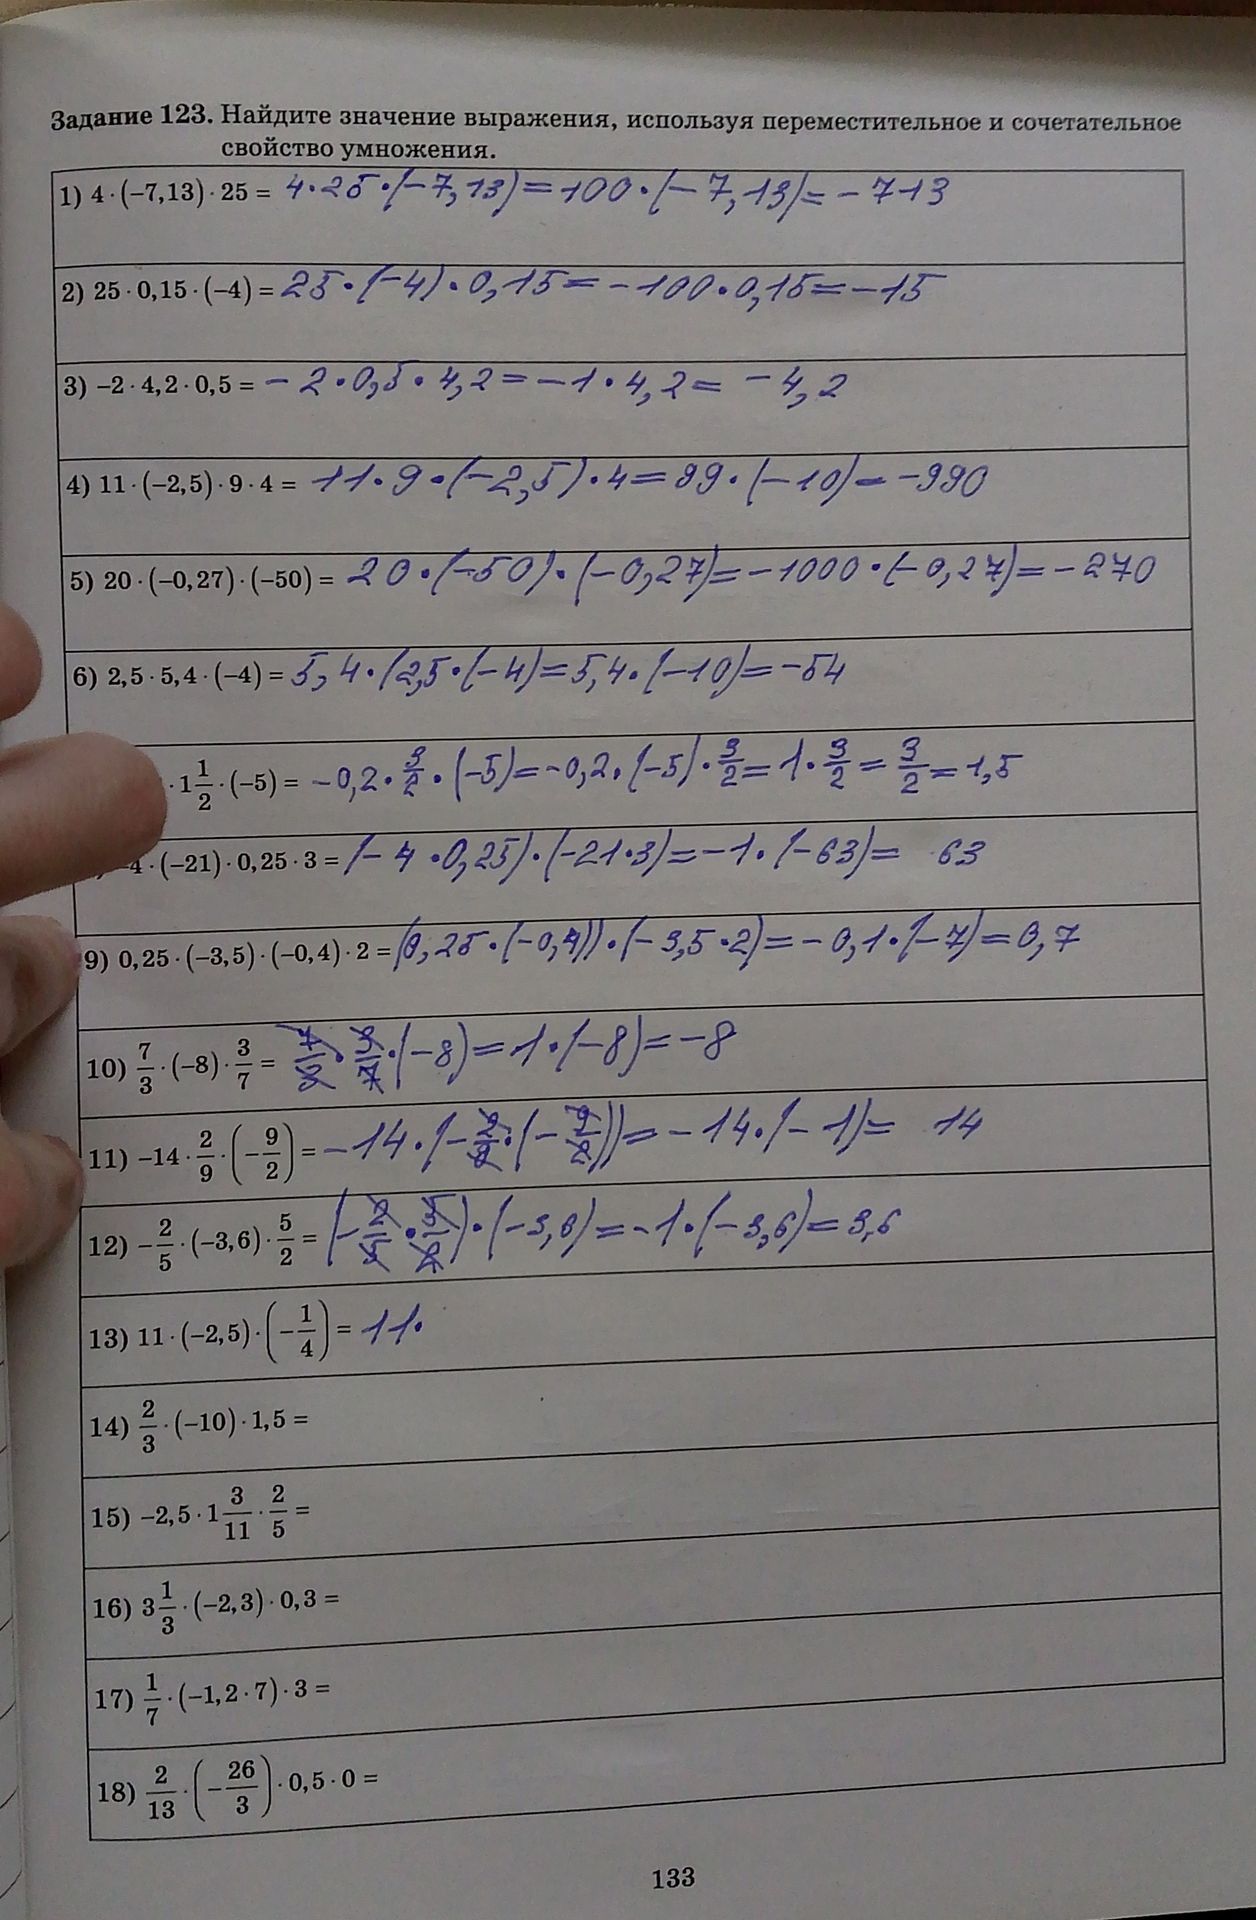 Задание 123. Найдите значение выражения, используя переместительное и сочетательное
свойство умножения.
1) 4 · (−7,13) · 25 = 4 · 25 · (−7,13) = 100 · (−7,13) = −713
2) 25 · 0,15 · (−4) = 25 · (−4) · 0,15 = −100 · 0,15 = −15
3) −2 · 4,2 · 0,5 = −2 · 0,5 · 4,2 = −1 · 4,2 = −4,2
4) 11 · (−2,5) · 9 · 4 = 11 · 9 · (−2,5) · 4 = 99 · (−10) = −990
5) 20 · (−0,27) · (−50) = 20 · (−50) · (−0,27) = −1000 · (−0,27) = −270
6) 2,5 · 5,4 · (−4) = 5,4 · (2,5 · (−4) = 5,4 · (−10) = −54
· 1 1/2 · (−5) = −0,2 · 3/2 · (−5) = −0,2 · (−5) · 3/2 = 1 · 3/2 = 3/2 = 1,5
−4 · (−21) · 0,25 · 3 = (−4 · 0,25) · (−21 · 3) = −1 · (−63) = 63
9) 0,25 · (−3,5) · (−0,4) · 2 = (0,25 · (−0,4)) · (−3,5 · 2) = −0,1 · (−7) = 0,7
10) 7/3 · (−8) · 3/7 = 7/3 · 3/7 · (−8) = 1 · (−8) = −8
11) −14 · 2/9 · (−9/2) = −14 · (−2/9 · (−9/2)) = −14 · (−1) = 14
12) −2/5 · (−3,6) · 5/2 = (−2/5 · 5/2) · (−3,6) = −1 · (−3,6) = 3,6
13) 11 · (−2,5) · (−1/4) = 11 ·
14) 2/3 · (−10) · 1,5 =
15) −2,5 · 1 3/11 · 2/5 =
16) 3 1/3 · (−2,3) · 0,3 =
17) 1/7 · (−1,2 · 7) · 3 =
18) 2/13 · (−26/3) · 0,5 · 0 =
133